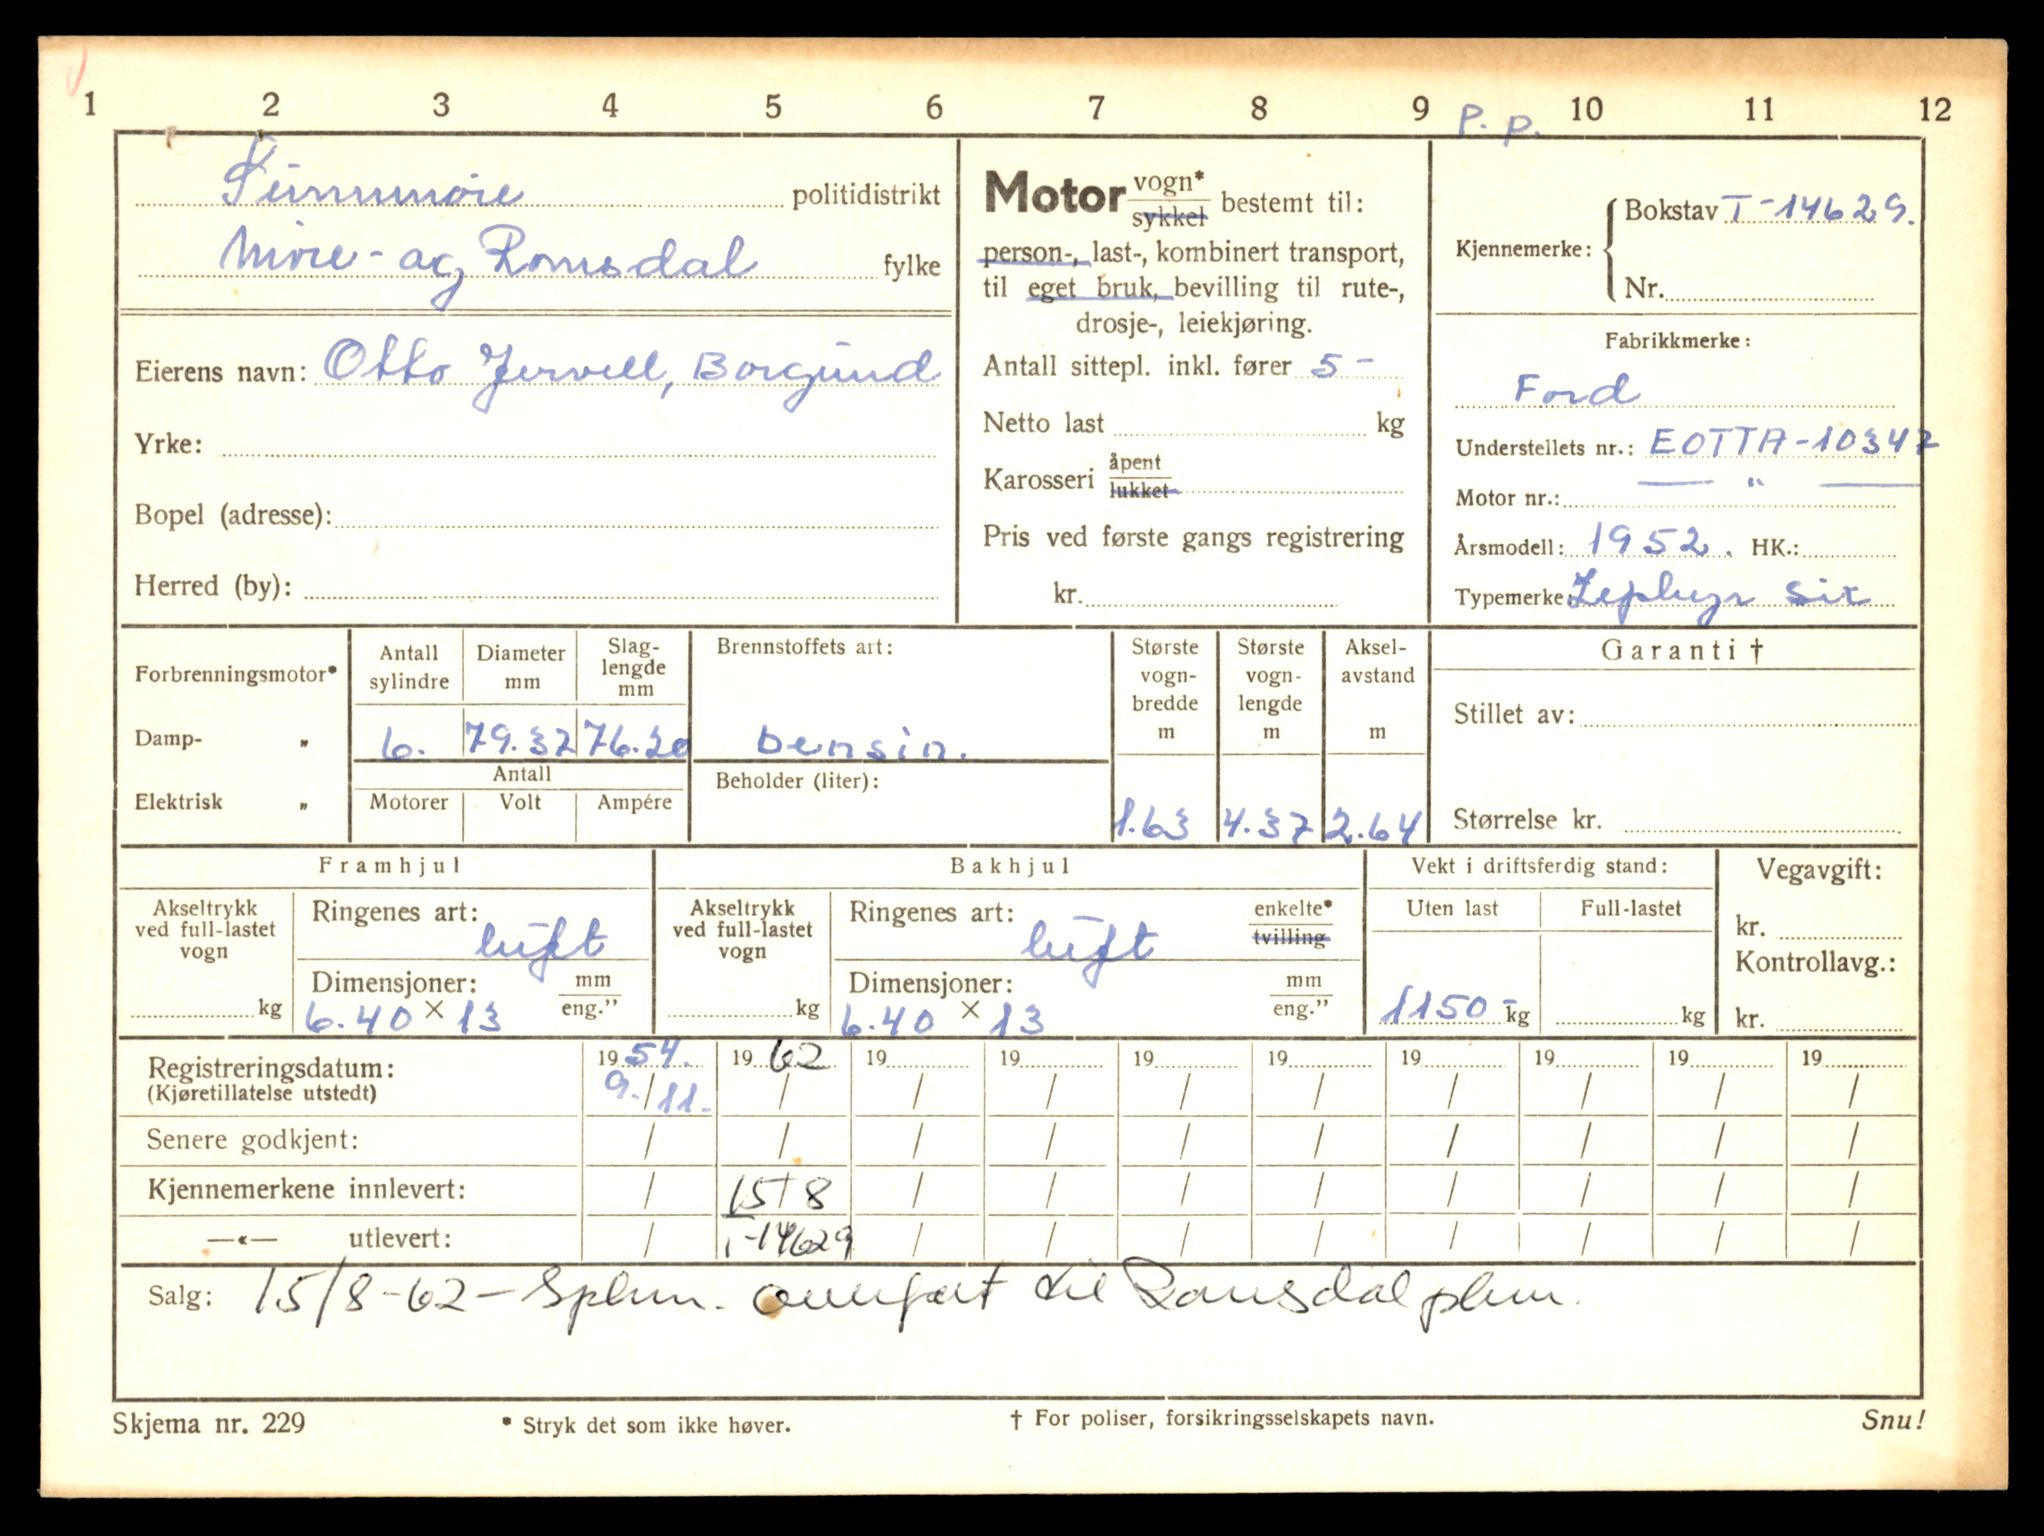 1 2 3 4 5 6 7 8 9 10 11 12
P. P.
Sunnmøre politidistrikt
Møre- og Romsdal fylke
Eierens navn: Otto Jervell, Borgund
Yrke:
Bopel (adresse):
Herred (by):
Motor vogn* sykkel bestemt til:
person-, last-, kombinert transport,
til eget bruk, bevilling til rute-,
drosje-, leiekjøring.
Antall sittepl. inkl. fører 5 -
Netto last kg
Karosseri åpent lukket
Pris ved første gangs registrering
kr.
Kjennemerke: Bokstav T-14629.
Nr.
Fabrikkmerke:
Ford
Understellets nr.: EOTTA-10347
Motor nr.: — " —
Årsmodell: 1952. HK.:
Typemerke: Zephyr six
Forbrenningsmotor*
Damp- „
Elektrisk „
Antall sylindre
Diameter mm
Slag-lengde mm
6. 79.37 76.20
Antall
Motorer Volt Ampére
Brennstoffets art:
bensin.
Beholder (liter):
Største vogn-bredde m
Største vogn-lengde m
Aksel-avstand m
1.63 4.37 2.64
Garanti †
Stillet av:
Størrelse kr.
Framhjul
Akseltrykk ved full-lastet vogn
kg
Ringenes art: luft
Dimensjoner: mm eng."
6.40 × 13
Bakhjul
Akseltrykk ved full-lastet vogn
kg
Ringenes art: luft enkelte* tvilling
Dimensjoner: mm eng."
6.40 × 13
Vekt i driftsferdig stand:
Uten last Full-lastet
1150 - kg kg
Vegavgift:
kr.
Kontrollavg.:
kr.
Registreringsdatum: 1954. 1962 19 19 19 19 19 19 19 19
(Kjøretillatelse utstedt) 9./11. / / / / / / / / /
Senere godkjent: / / / / / / / / / /
Kjennemerkene innlevert: / 15/8 / / / / / / / /
—«— utlevert: / T-14629 / / / / / / / /
Salg: 15/8-62 - Sphm. overført til Romsdal phm.
Skjema nr. 229
* Stryk det som ikke høver.
† For poliser, forsikringsselskapets navn.
Snu!